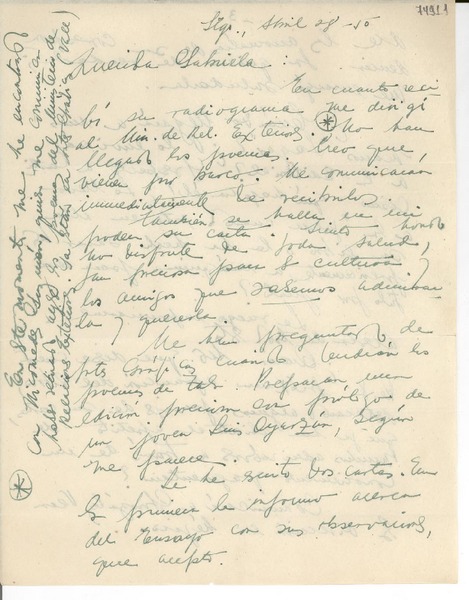 74911
Stgo., Abril 28 - 50
Querida Gabriela:
En cuanto reci
bí su radiograma me dirigí
al Min. de Rel. Exteriores. * No han
llegado los poemas. Creo que
vienen por barco. Me comunicarán
inmediatamente de recibirlos.
También se halla en mi
poder su carta. Siento hondo
no disfrute de toda salud,
tan preciosa para la cultura y
los amigos que sabemos admirar
la y quererla.
Me han preguntado de
cuando tendrán los
poemas de Tala. Preparan una
edición preciosa con prólogo de
un joven Luis Oyarzún, según
me parece.
Le he escrito dos cartas. En
la primera le informo acerca
del Ensayo con sus observaciones,
que acepto.
* En este momento me he encontrado
con Nicomedes Guzmán, quien me comunica
haber recibido ayer los poemas del Ministerio de
Relaciones Exteriores. Ya están en